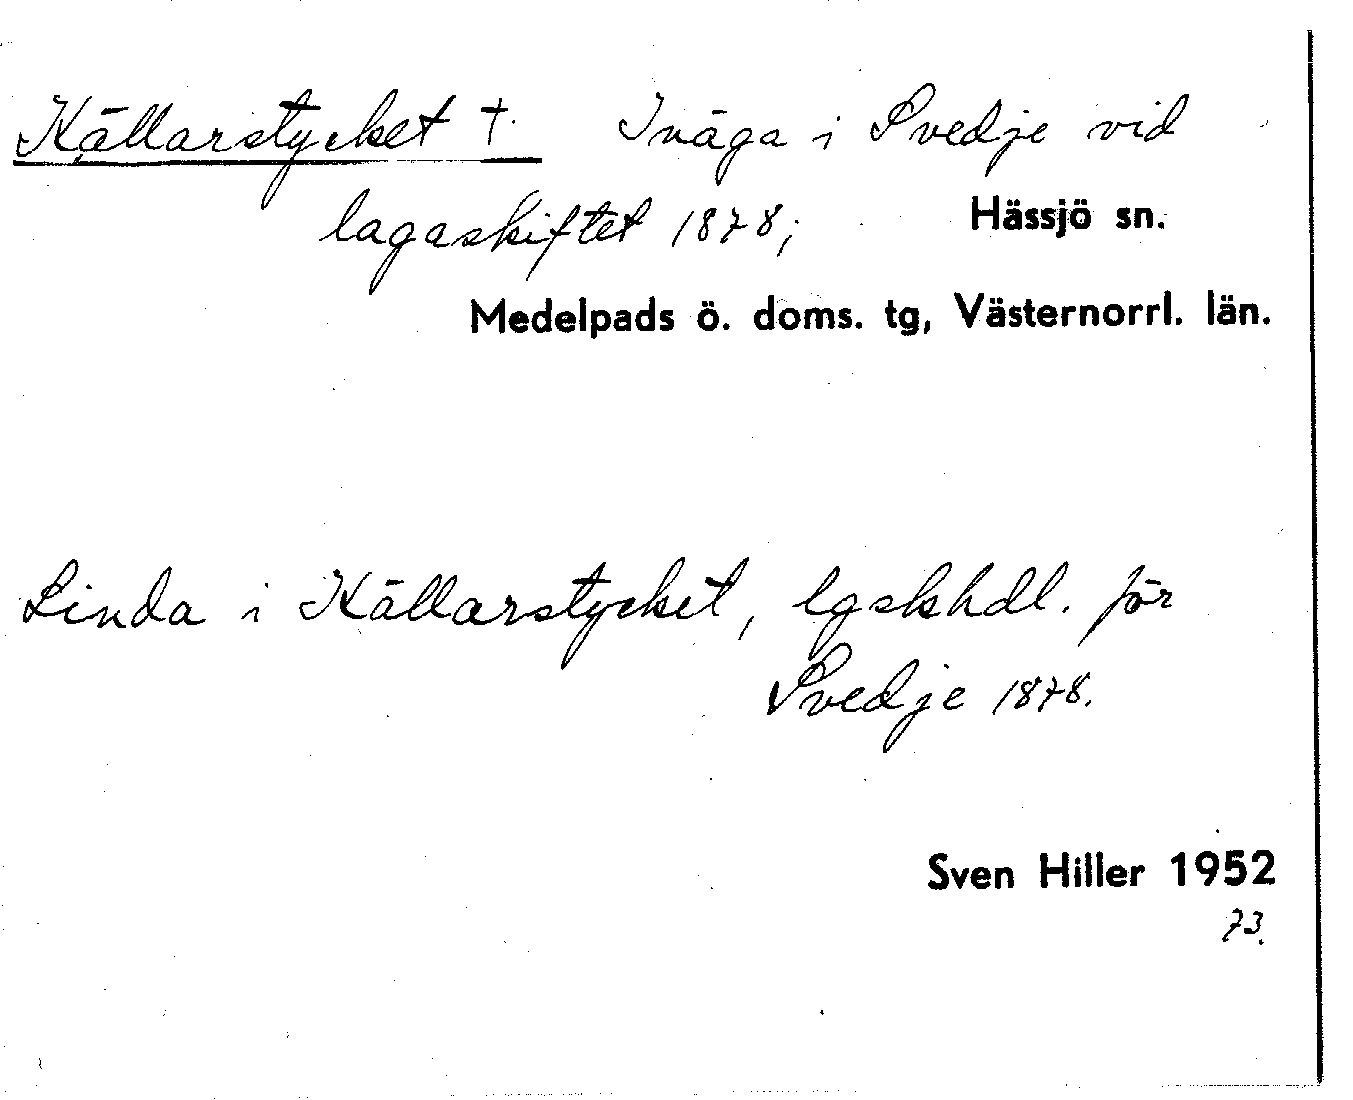 Källarstycket †. Inäga i Svedje vid
lagaskiftet 1878;
Hässjö sn.
Medelpads ö. doms. tg, Västernorrl. län.
Linda i Källarstycket, lgskhdl. för
Svedje 1878.
Sven Hiller 1952
73.